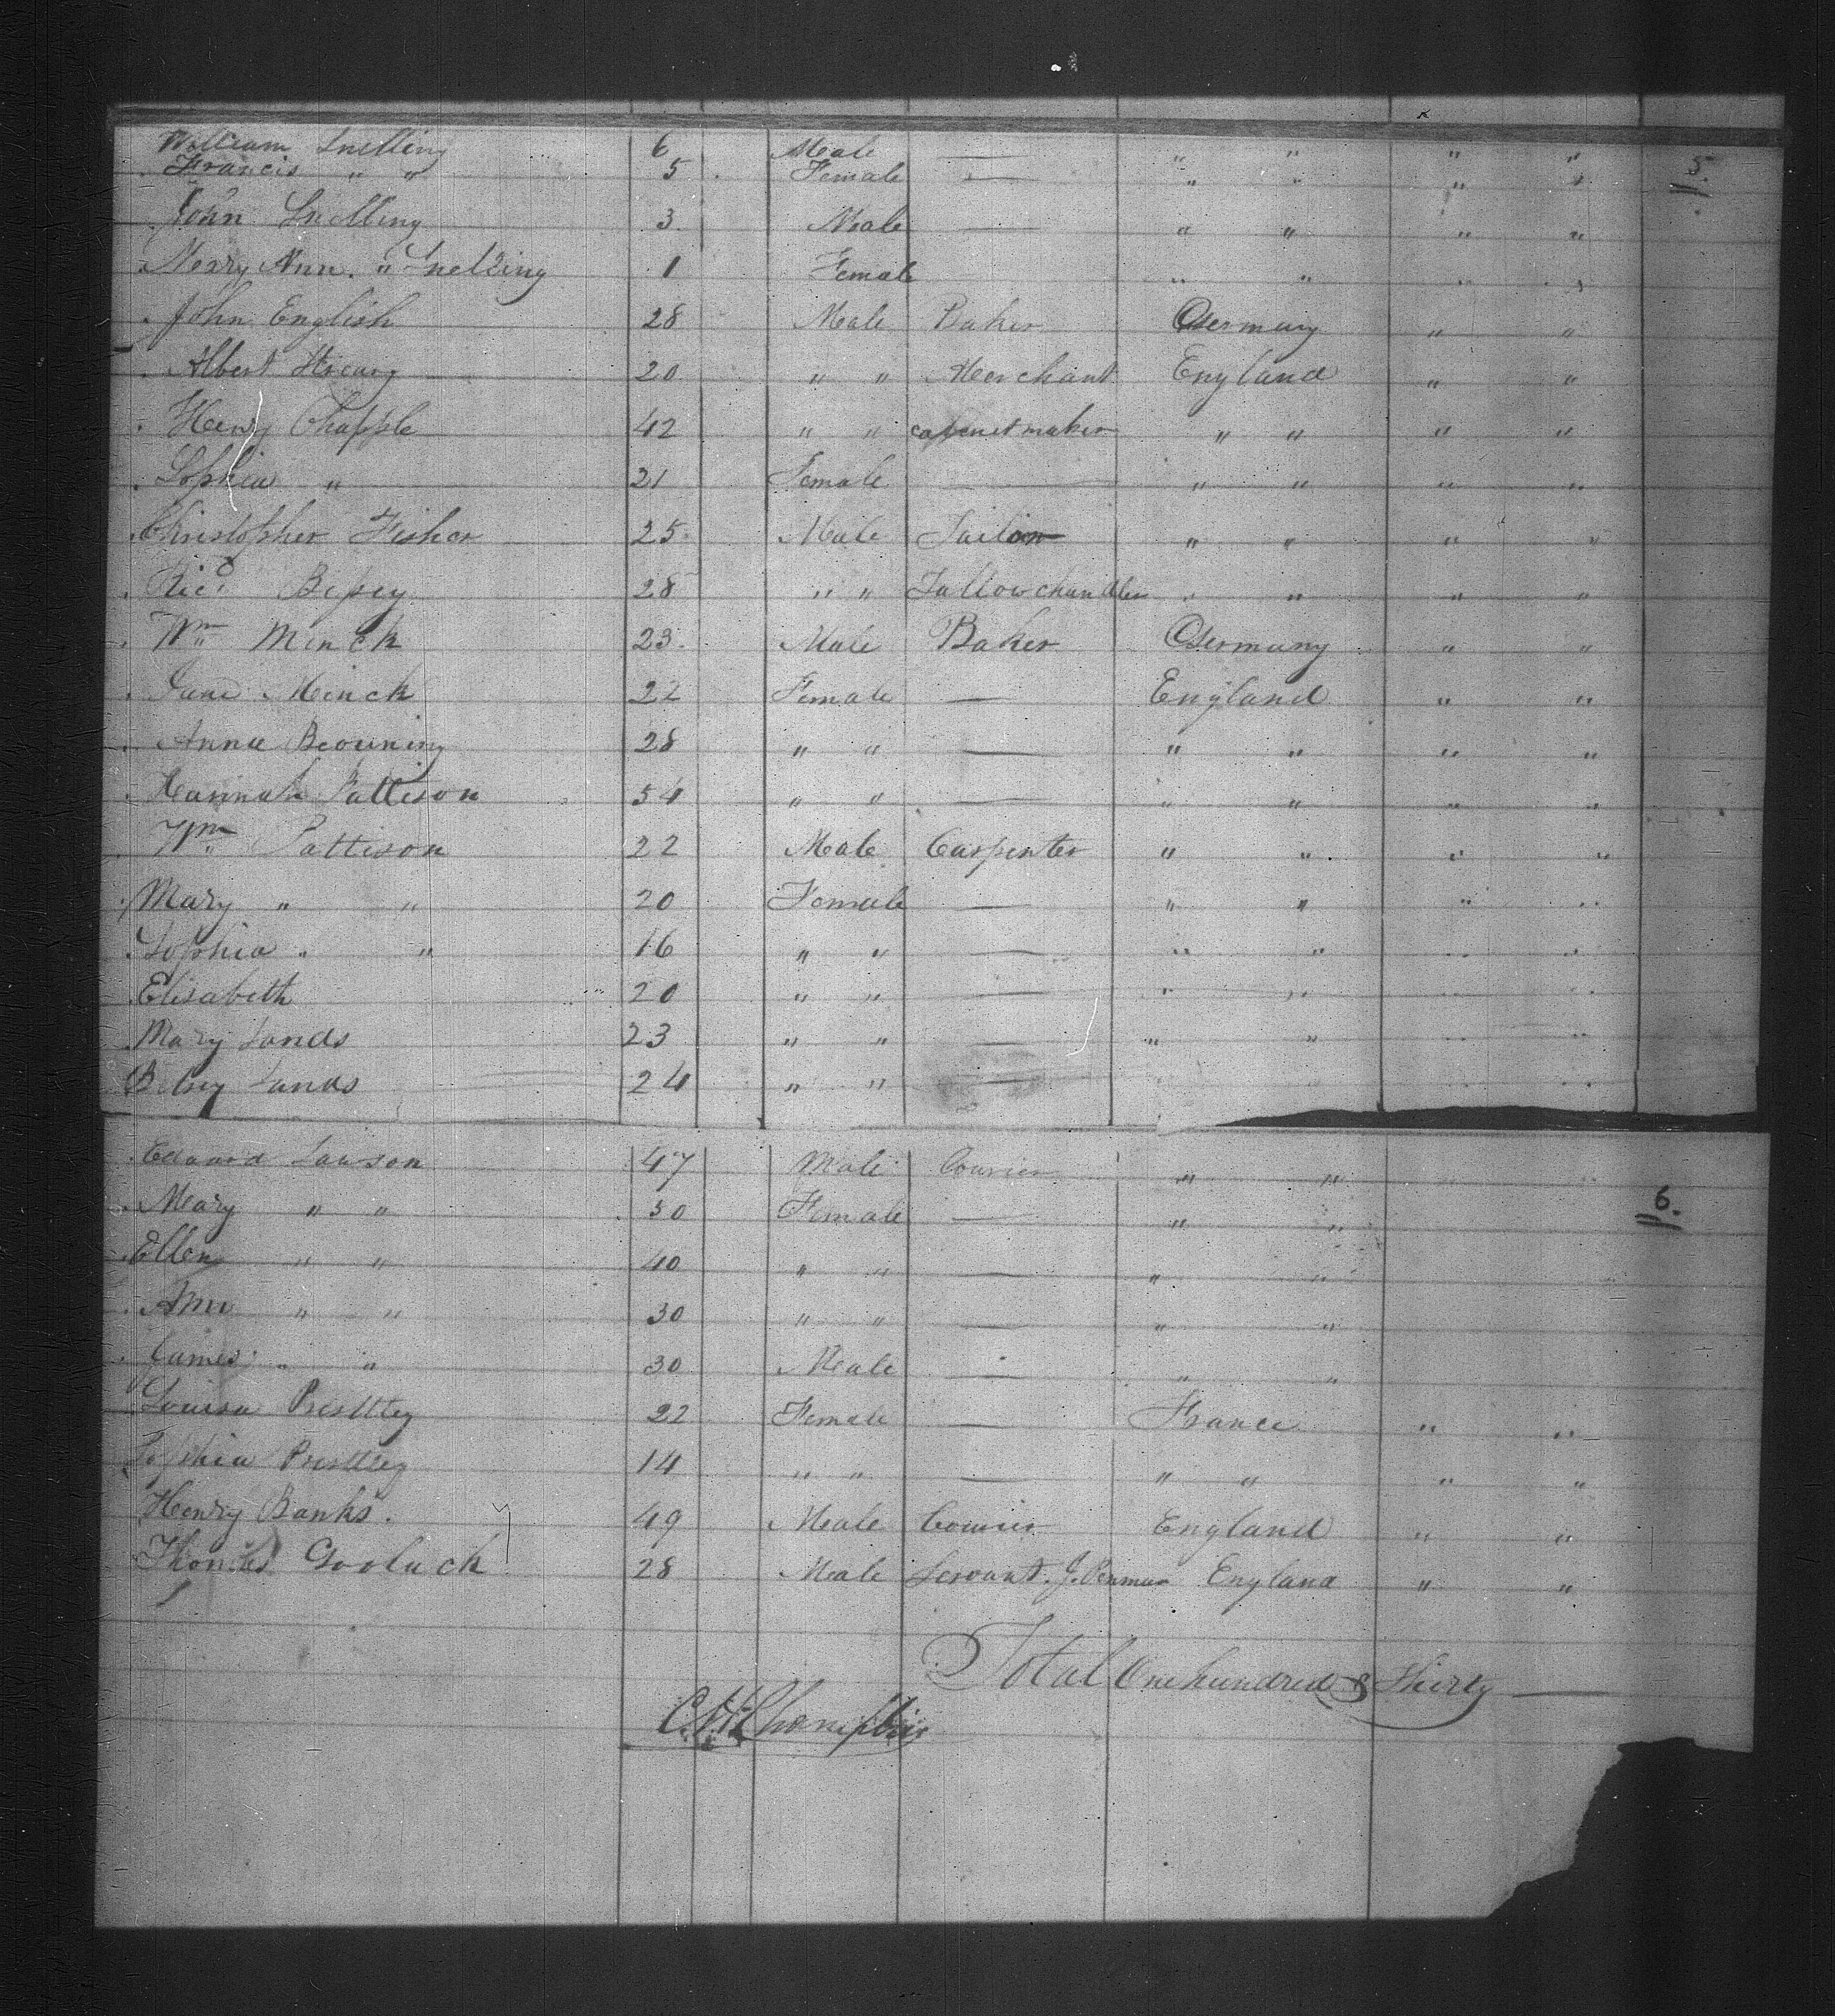 William Snelling 6 Male — " " " " 5.
Francis " " 5 Female — " " " "
John Snelling 3 Male — " " " "
Merry Ann. " Snelling 1 Female " " " "
John English 28 Male Baker Germany " "
Albert 20 " " Merchant England " "
Henry Chapple 42 " " cabenet maker " " " "
Sophia " 21 Female — " " " "
Christopher Fisher 25 Male Tailor " " " "
Ricd. 28 " " Tallow chandler " " " "
Wm Minck 23 Male Baker Germany " "
Jane Minck 22 Female — England " "
Anna Browning 28 " " — " " " "
Hannah Pattison 54 " " — " " " "
Wm Pattison 22 Male Carpenter " " " "
Mary " " 20 Female — " " " "
Sophia " " 16 " " — " " " "
Elisabeth 20 " " — " " " "
Mary Sands 23 " " — " " " "
Betsy Sands 24 " " — " " " "
Edward Lawson 47 Male Courier " " " "
Mary " " 30 Female — " " 6.
Ellen " " 40 " " — " "
Ann " " 30 " " — " "
James " " 30 Male — " "
Louisa Prestley 22 Female — France " "
Sophia Prestley 14 " " — " " " "
Henry Banks. 49 Male Courier England " "
Thomas Gooluck 28 Male Servant. J. Penman England " "
Total One hundred & Thirty —
C. H. Champlin